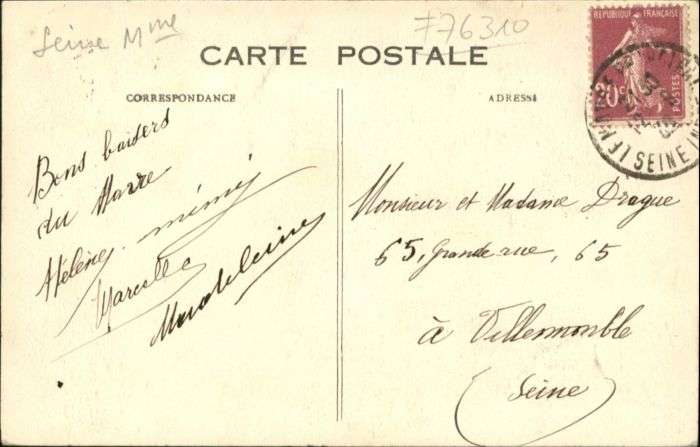 Seine Mme
F76310
CARTE POSTALE
CORRESPONDANCE
ADRESSE
REPUBLIQUE FRANÇAISE
20c
POSTES
LE HAVRE
SEINE
Bons baisers
du Havre
Hélène mimi
Marcelle
Madeleine
Monsieur et Madame Drague
65, Grande rue, 65
à Villemomble
(Seine)